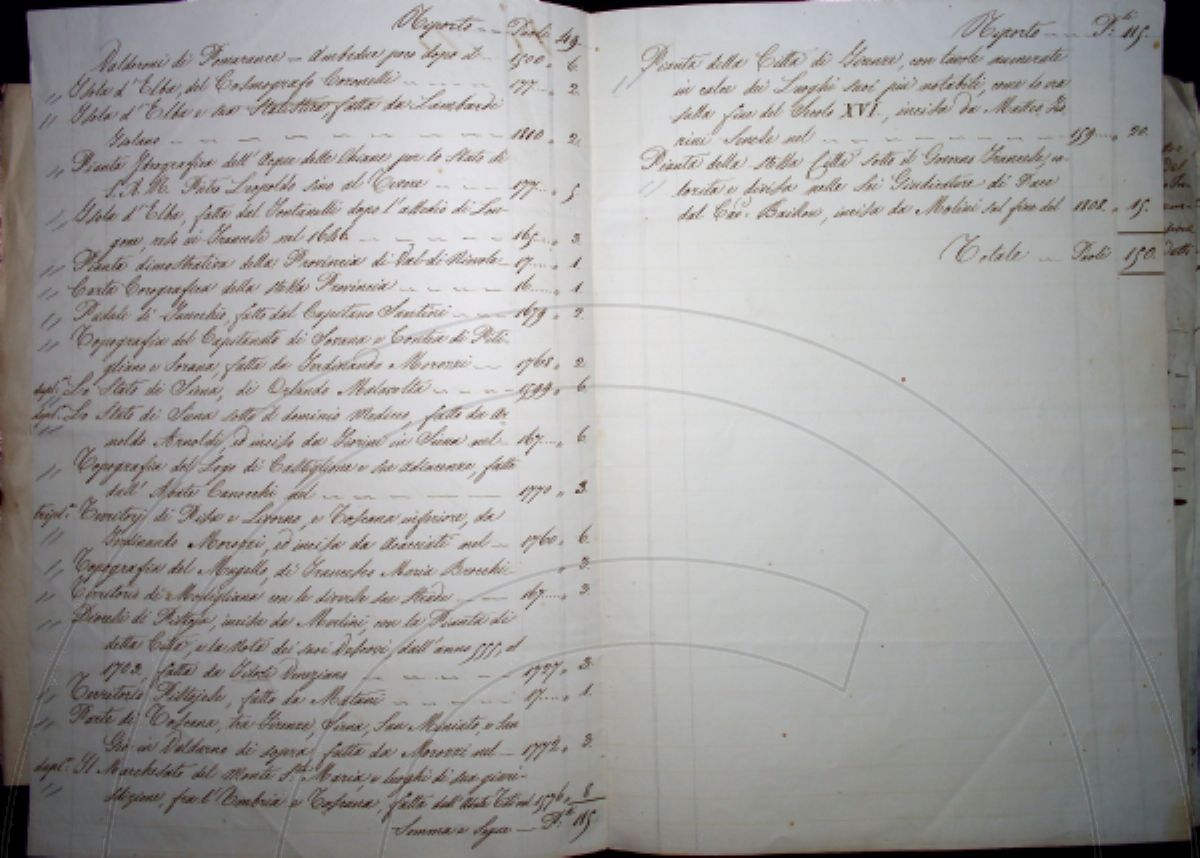 Riporto -- Paoli 49.
Valdorni di Pomarance - Ambedue poco dopo il - 1500 " 6.
" Isola d'Elba, del Cosmografo Coronelli -- 177... " 2.
" Isola d'Elba e sua fatta da Lambardi
-- 1800 " 2.
" Pianta Idrografica dell'Acque delle Chiane per lo Stato di
S.A.R. Pietro Leopoldo sino al Tevere -- 177... " 5
" Isola d'Elba, fatta dal Fontanelli dopo l'assedio di Lon-
gone, reso ai Francesi nel 1646 -- 165... " 3.
" Pianta dimostrativa della Provincia di Val-di-Nievole - 17... " 1.
" Carta Corografica della stessa Provincia -- 16... " 1.
" Padule di Fucecchio, fatto dal Capitano Santini -- 1679 " 2.
" Topografia del Capitanato di Sovana e Contea di Piti-
gliano e Sorano, fatta da Ferdinando Morozzi -- 1768 " 2
dupl.º Lo Stato di Siena, di Orlando Malavolta -- 1599 " 6.
dupl.º Lo Stato di Siena sotto il dominio Mediceo, fatto da Ar-
" noldo Arnoldi, ed inciso da Florini in Siena nel - 167... " 6.
" Topografia del Lago di Castiglione e sue adiacenze, fatta
dall'Abate nel -- 1770 " 3.
tripl.º Territorj di Pisa e Livorno, e Toscana inferiore, da
" Ferdinando Morozzi, ed incisa da nel - 1760 " 6.
" Topografia del Mugello, di Francesco Maria Brocchi " 3.
" Territorio di Modigliana con le diverse sue strade -- 167... " 3.
" Diocesi di Pistoja, incisa da con la Pianta di
detta Città, e la nota dei suoi Vescovi, dall'anno 555, al
1703, fatta da Veneziano -- 1727 " 3.
" Territorio Pistojese, fatto da Matani -- 17... " 1.
" Parte di Toscana, tra Firenze, Siena, San Miniato, e San
Gio: in Valdarno di sopra, fatta da Morozzi nel - 1772 " 3.
dupl.º Il Marchesato del Monte S.ta Maria, e luoghi di sua giuri-
" sdizione, fra l'Umbria e Toscana, fatta dall'Abate nel 1576 " 8
Somma e Segue -- P.li 115
Riporto -- P.li 115.
" Pianta della Città di Firenze, con tavole numerate
in calce dei Luoghi suoi più notabili, come lo era
sulla fine del Secolo XVI, incisa da Matteo Flo-
rini Senese nel -- 159... " 20.
" Pianta della stessa Città sotto il Governo Francese, co-
lorita e divisa nelle sei Giudicature di Pace
dal Cav. incisa da Molini sul fine del 1808 " 15.
Totale -- Paoli 150.